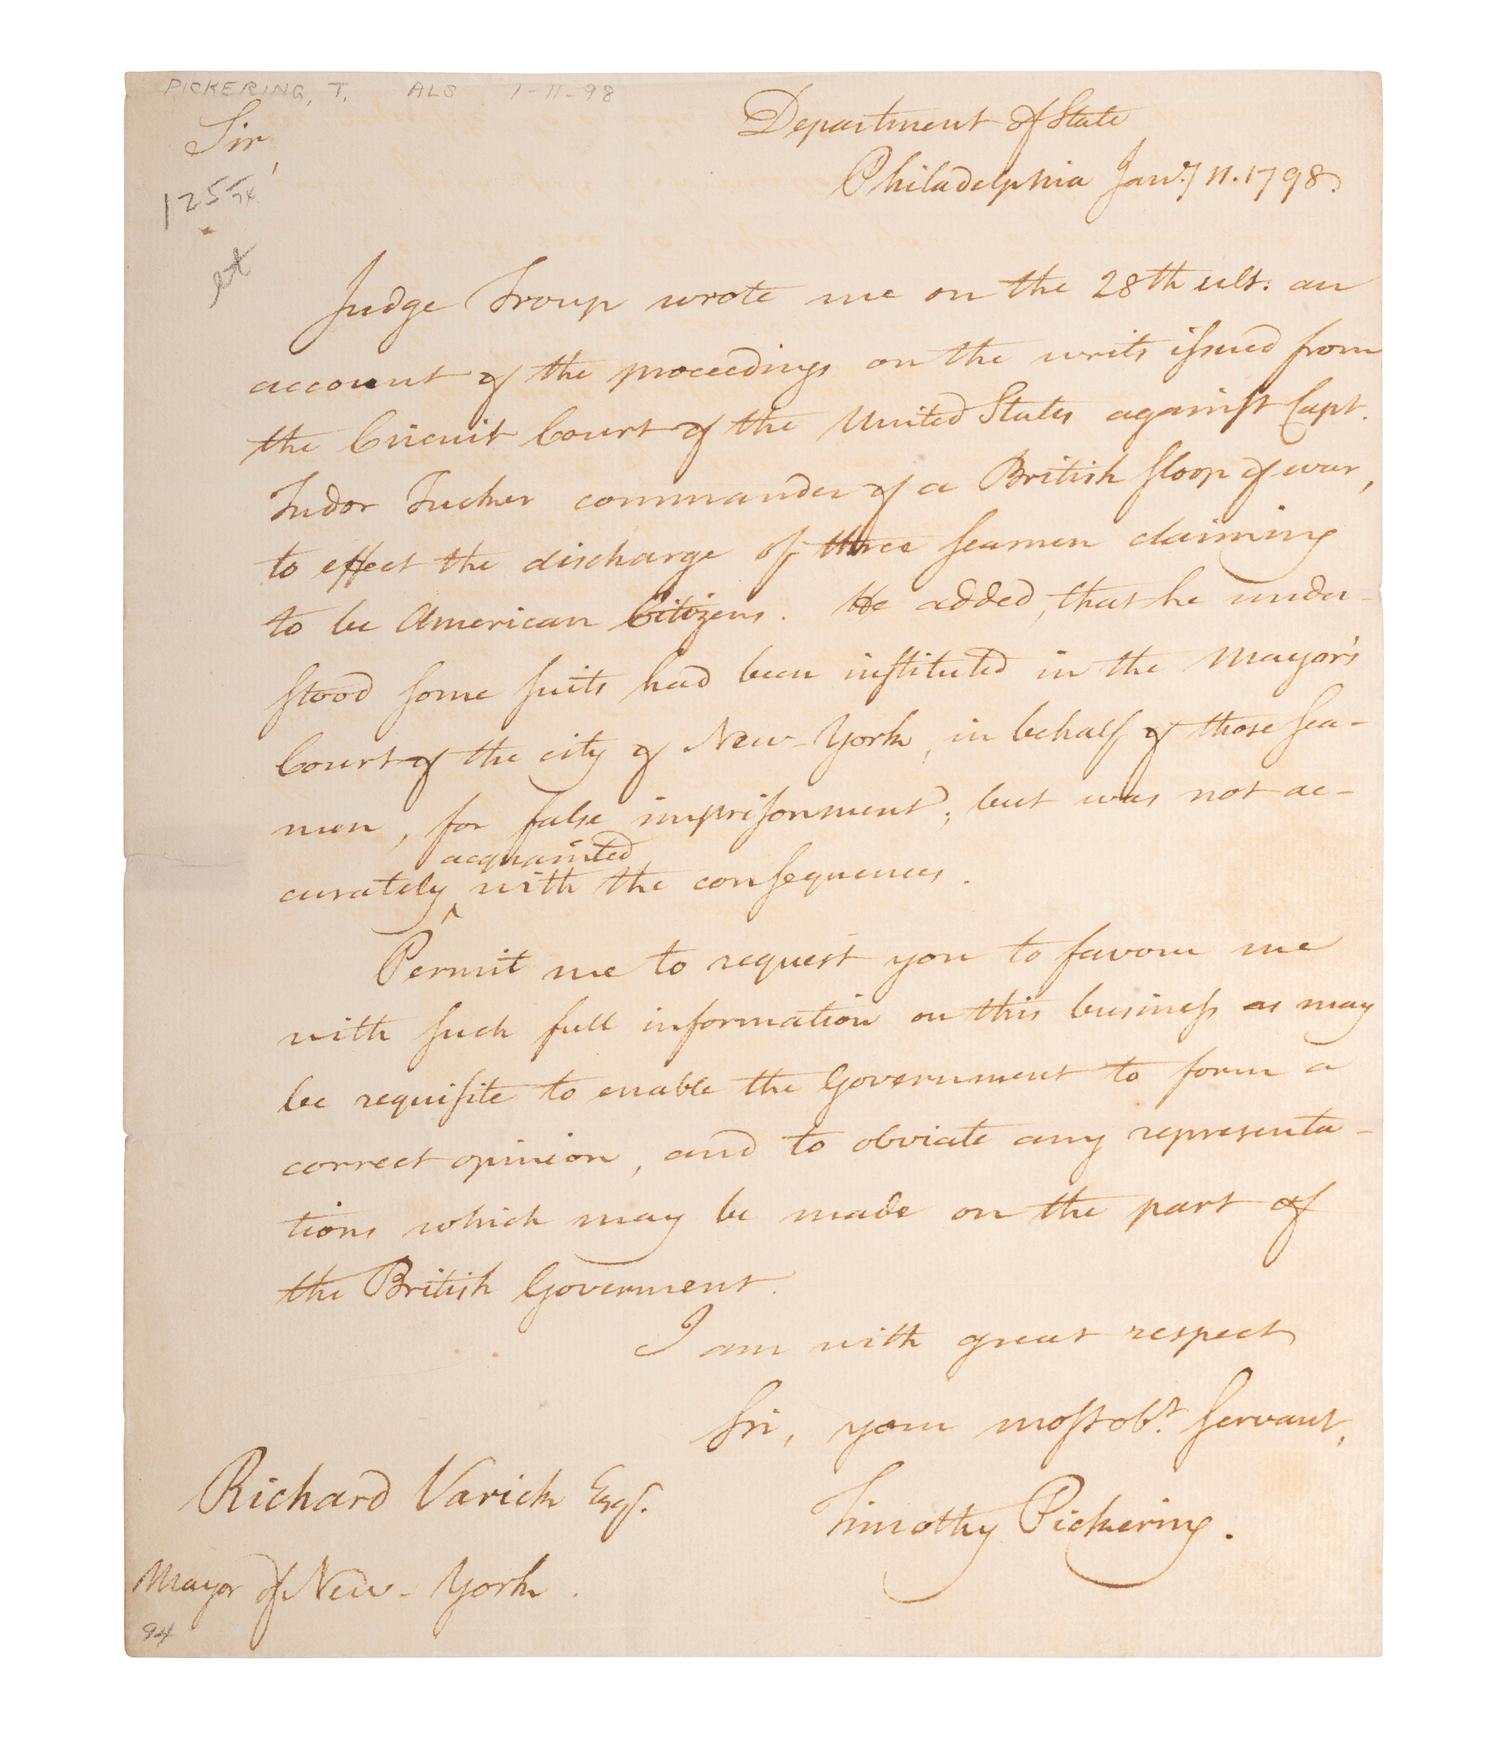 PICKERING, T. ALS 1-11-98
Department of State
Sir,
Philadelphia Jany 11. 1798.
125
Judge Troup wrote me on the 28th ult. an
account of the proceedings on the writs issued from
the Circuit Court of the United States against Capt.
Tudor Tucker commander of a British sloop of war,
to effect the discharge of three seamen claiming
to be American Citizens. He added, that he under-
stood some suits had been instituted in the Mayor's
Court of the city of New-York, in behalf of those sea-
men, for false imprisonment; but was not ac-
acquainted
curately ^ with the consequences.
Permit me to request you to favour me
with such full information on this business as may
be requisite to enable the Government to form a
correct opinion, and to obviate any representa-
tions which may be made on the part of
the British Goverment.
I am with great respect
Sir, your most obt. servant,
Richard Varick Esqr.
Timothy Pickering.
Mayor of New-York.
94